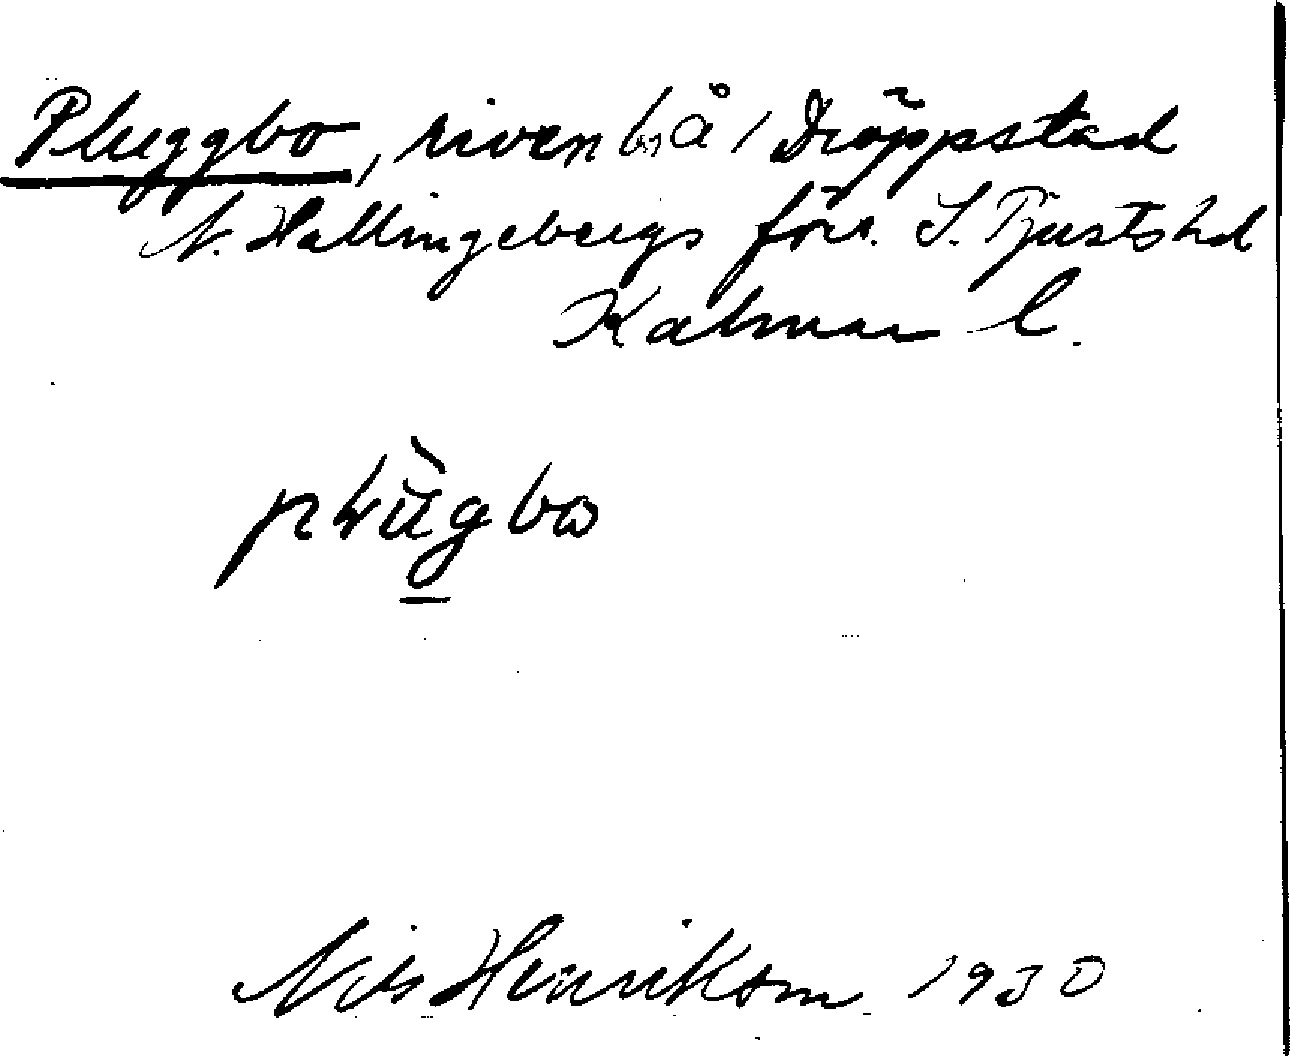 Pluggbo, riven bs å / Dröppstad
N. Hallingebergs förs. S. Tjusts hd
Kalmar l.
plùgbo
Nils Henrikson 1930